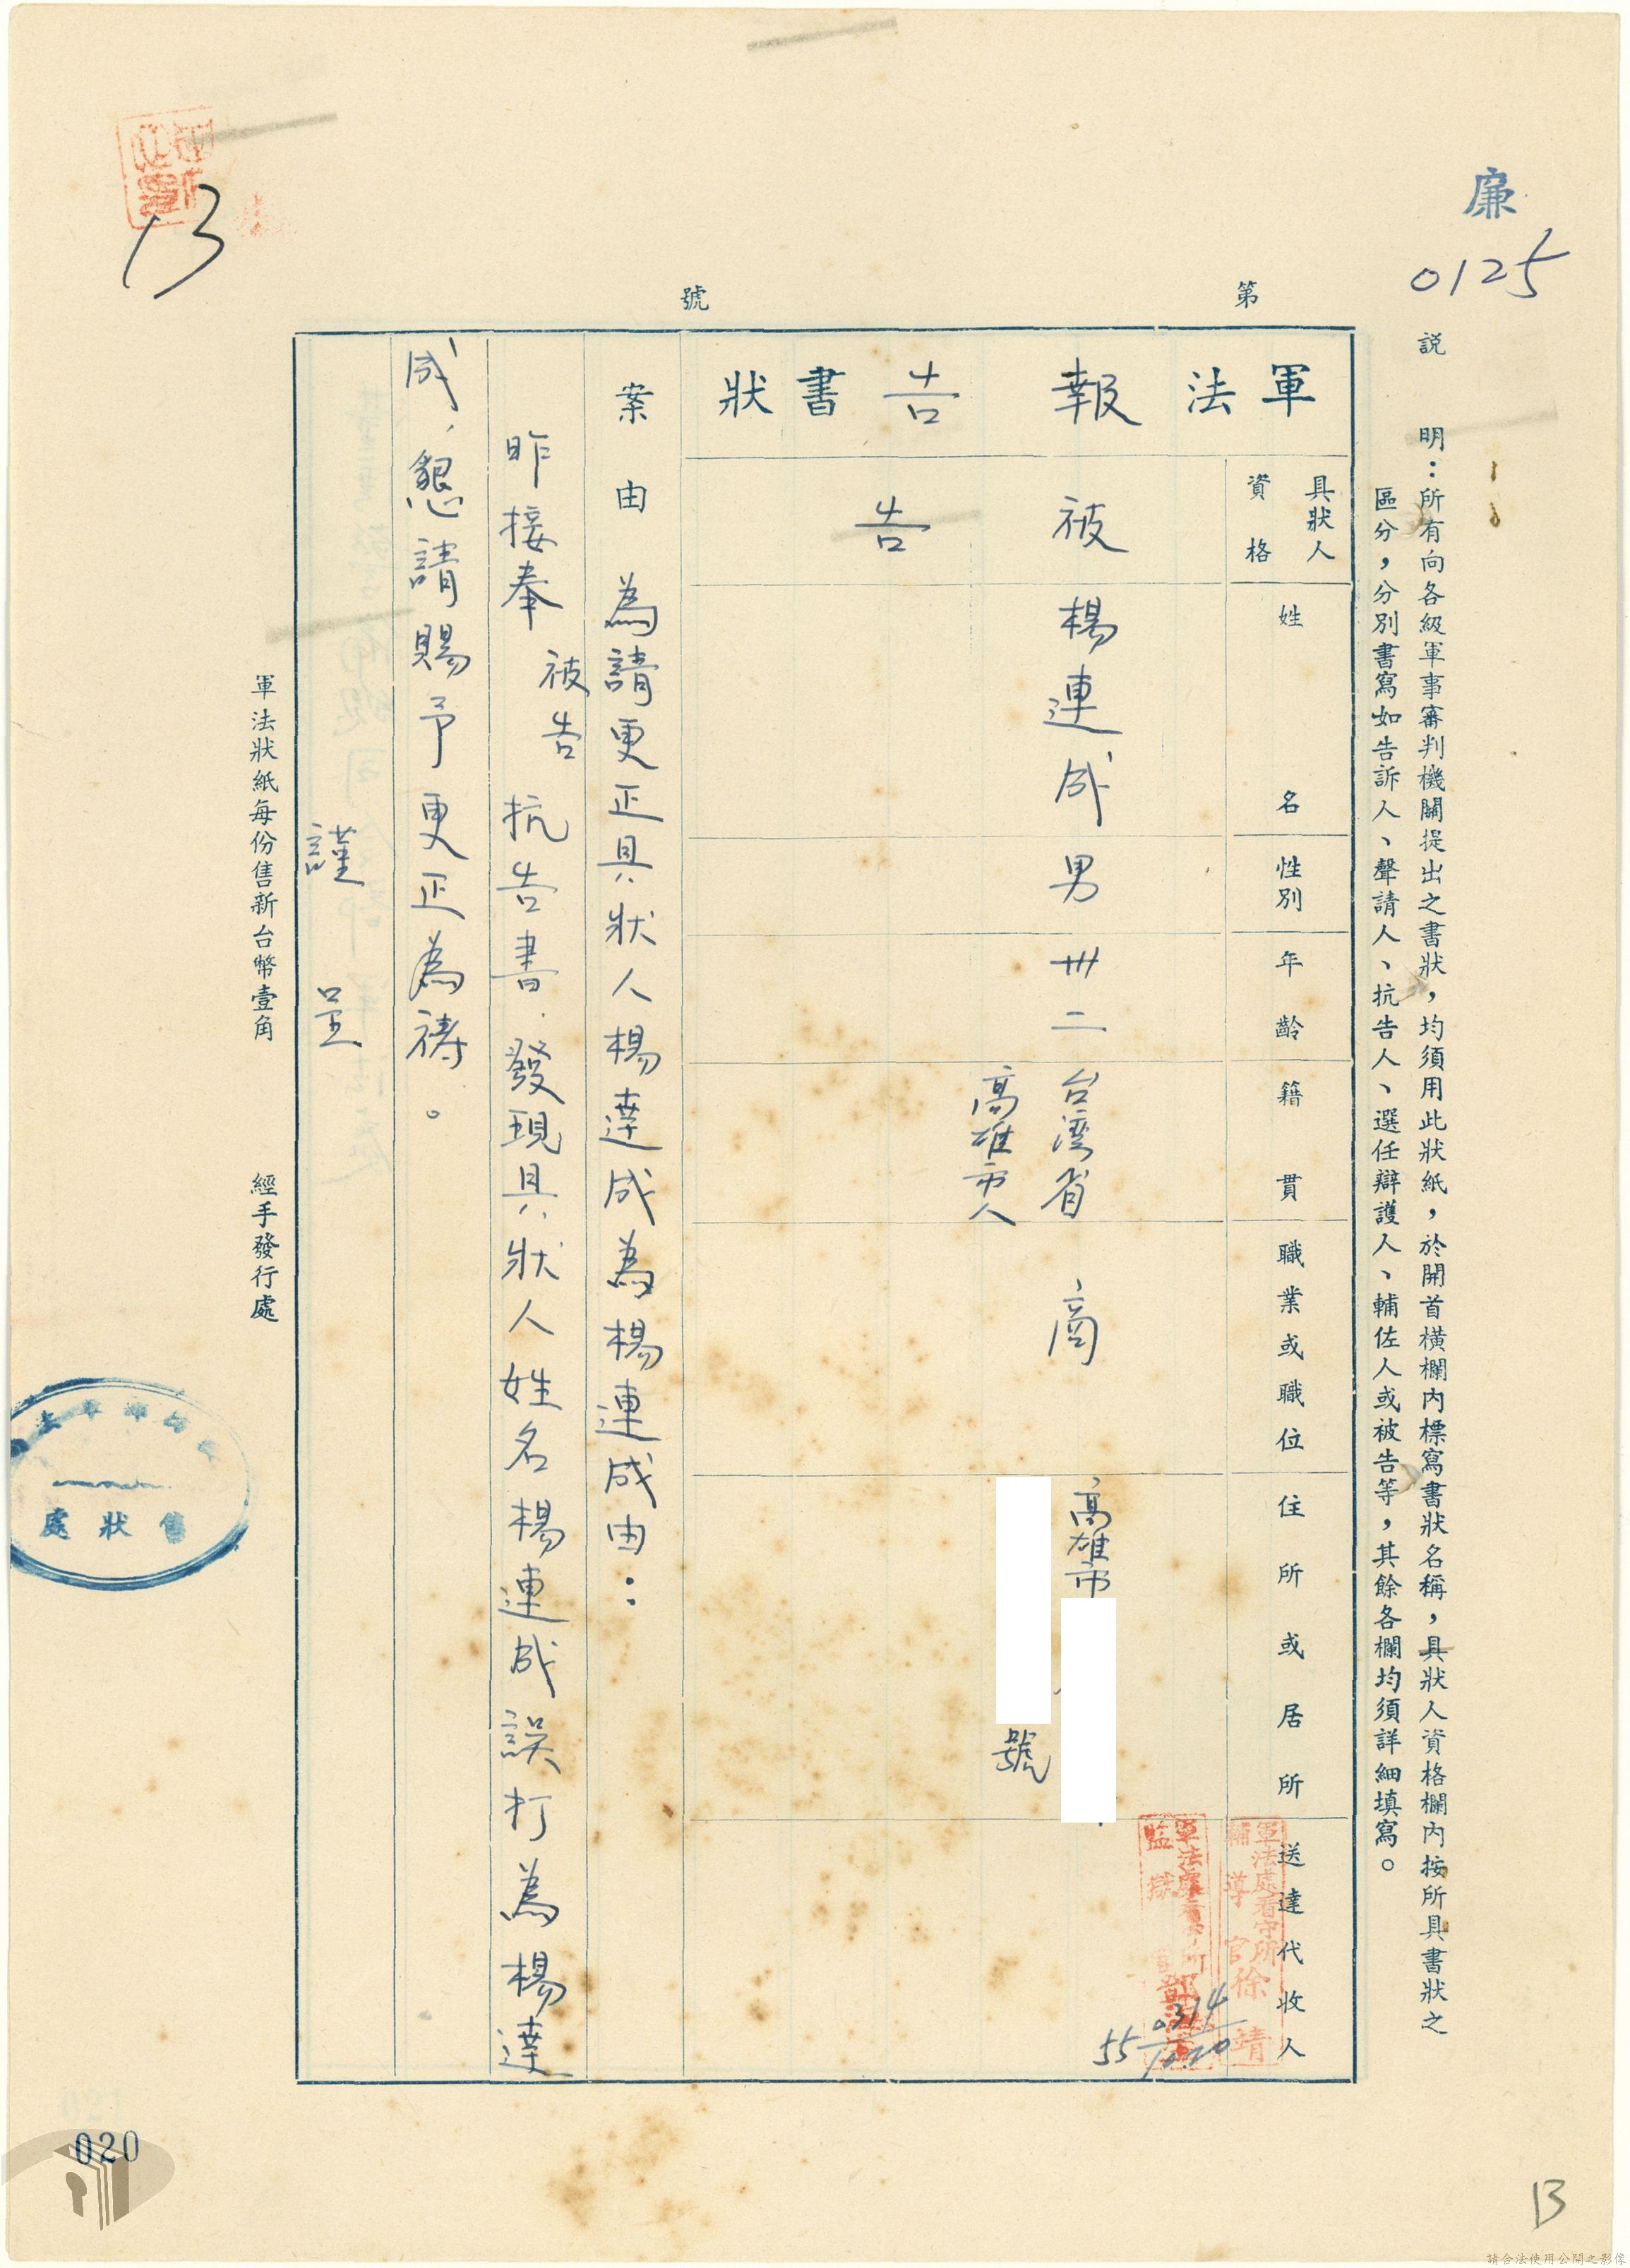 廉
0125
說明：所有向各級軍事審判機關提出之書狀，均須用此狀紙，於開首橫欄內標寫書狀名稱，具狀人資格欄內按所具書狀之
區分，分別書寫如告訴人、聲請人、抗告人、選任辯護人、輔佐人或被告等，其餘各欄均須詳細填寫。
第 號
軍法報告書狀
具狀人資格
姓名
性別
年齡
籍貫
職業或職位
住所或居所
送達代收人
軍法處看守所
輔導官徐靖
軍法處看守所
監獄
55 0314
10.20
被告
楊連成
男
卅二
台灣省
高雄市人
商
高雄市
號
案由 為請更正具狀人楊達成為楊連成由：
昨接奉 被告 抗告書．發現具狀人姓名楊連成誤打為楊達
成，懇請賜予更正為禱。
謹呈
軍法狀紙每份售新台幣壹角 經手發行處
售狀處
13
020
13
請合法使用公開之影像